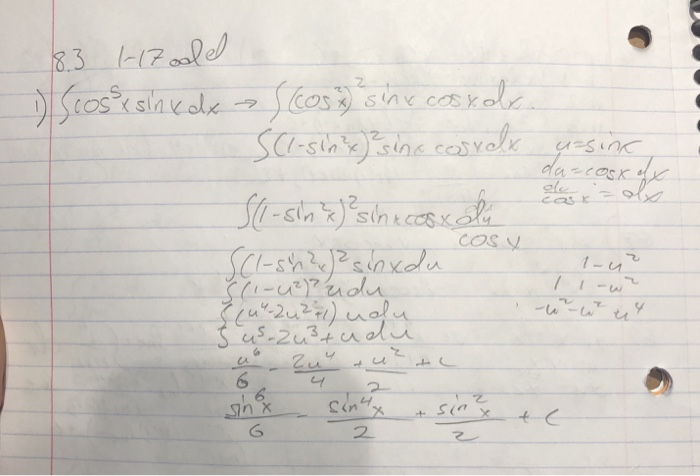 8.3 1-17 odd
1) ∫cos⁵x sinx dx → ∫(cos²x)² sinx cosx dx.
∫(1-sin²x)² sinx cosx dx u=sinx
du=cosx dx
du/cosx = dx
∫(1-sin²x)² sinx cosx du/cosx
∫(1-sin²x)² sinx du 1-u²
∫(1-u²)² u du 1 1-u²
∫(u⁴-2u²+1) u du -u²-u² u⁴
∫ u⁵-2u³+u du
u⁶/6 - 2u⁴/4 + u²/2 + c
sin⁶x/6 - sin⁴x/2 + sin²x/2 + C